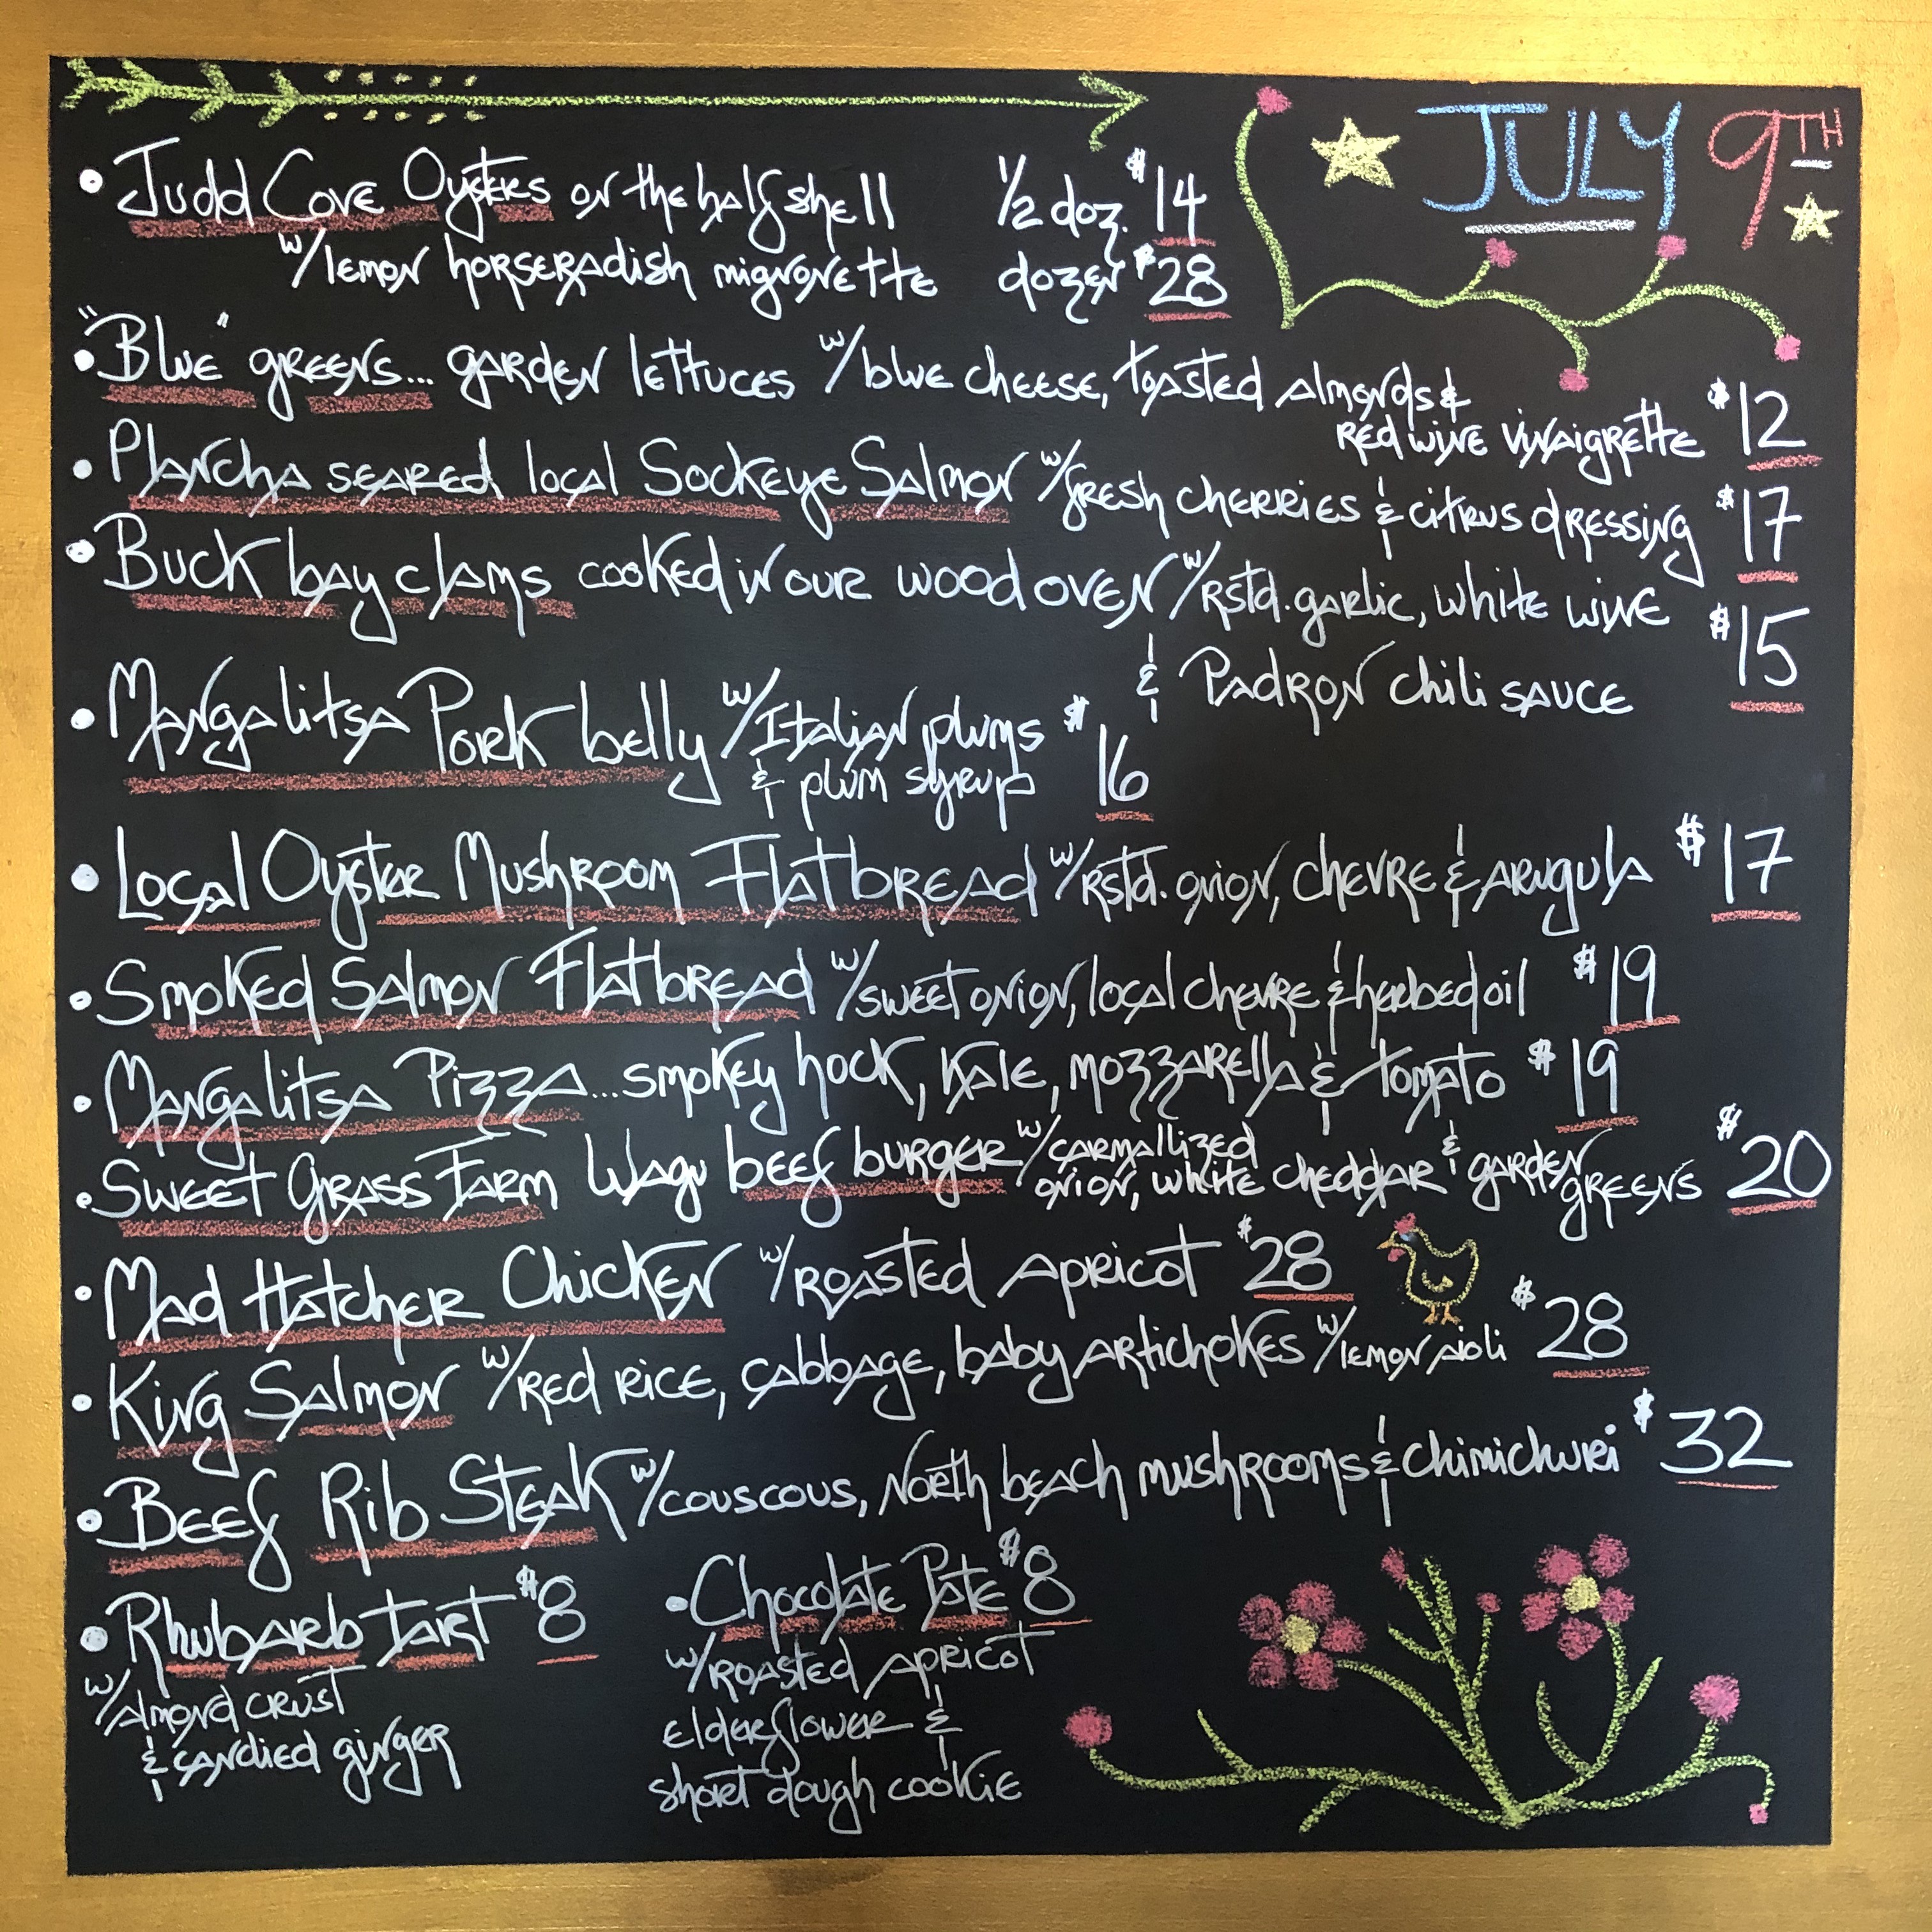 JULY 9TH
• Judd Cove Oysters on the half shell 1/2 doz. $14
w/lemon horseradish mignonette dozen $28
• "Blue" greens... garden lettuces w/blue cheese, toasted almonds &
red wine vinaigrette $12
• Plancha seared local Sockeye Salmon w/fresh cherries & citrus dressing $17
• Buck bay clams cooked in our wood oven w/rstd. garlic, white wine $15
& Padron chili sauce
• Mangalitsa Pork belly w/Italian plums $16
& plum syrup
• Local Oyster Mushroom Flatbread w/rstd. onion, chevre & arugula $17
• Smoked Salmon Flatbread w/sweet onion, local chevre & herbed oil $19
• Mangalitsa Pizza...smokey hock, kale, mozzarella & tomato $19
• Sweet Grass Farm Wagu beef burger w/carmallized
onion, white cheddar & garden greens $20
• Mad Hatcher Chicken w/roasted apricot $28
• King Salmon w/red rice, cabbage, baby artichokes w/lemon aioli $28
• Beef Rib Steak w/couscous, North beach mushrooms & chimichuri $32
• Rhubarb Tart $8
w/Almond crust
& candied ginger
• Chocolate Pate $8
w/roasted apricot
elderflower &
short dough cookie